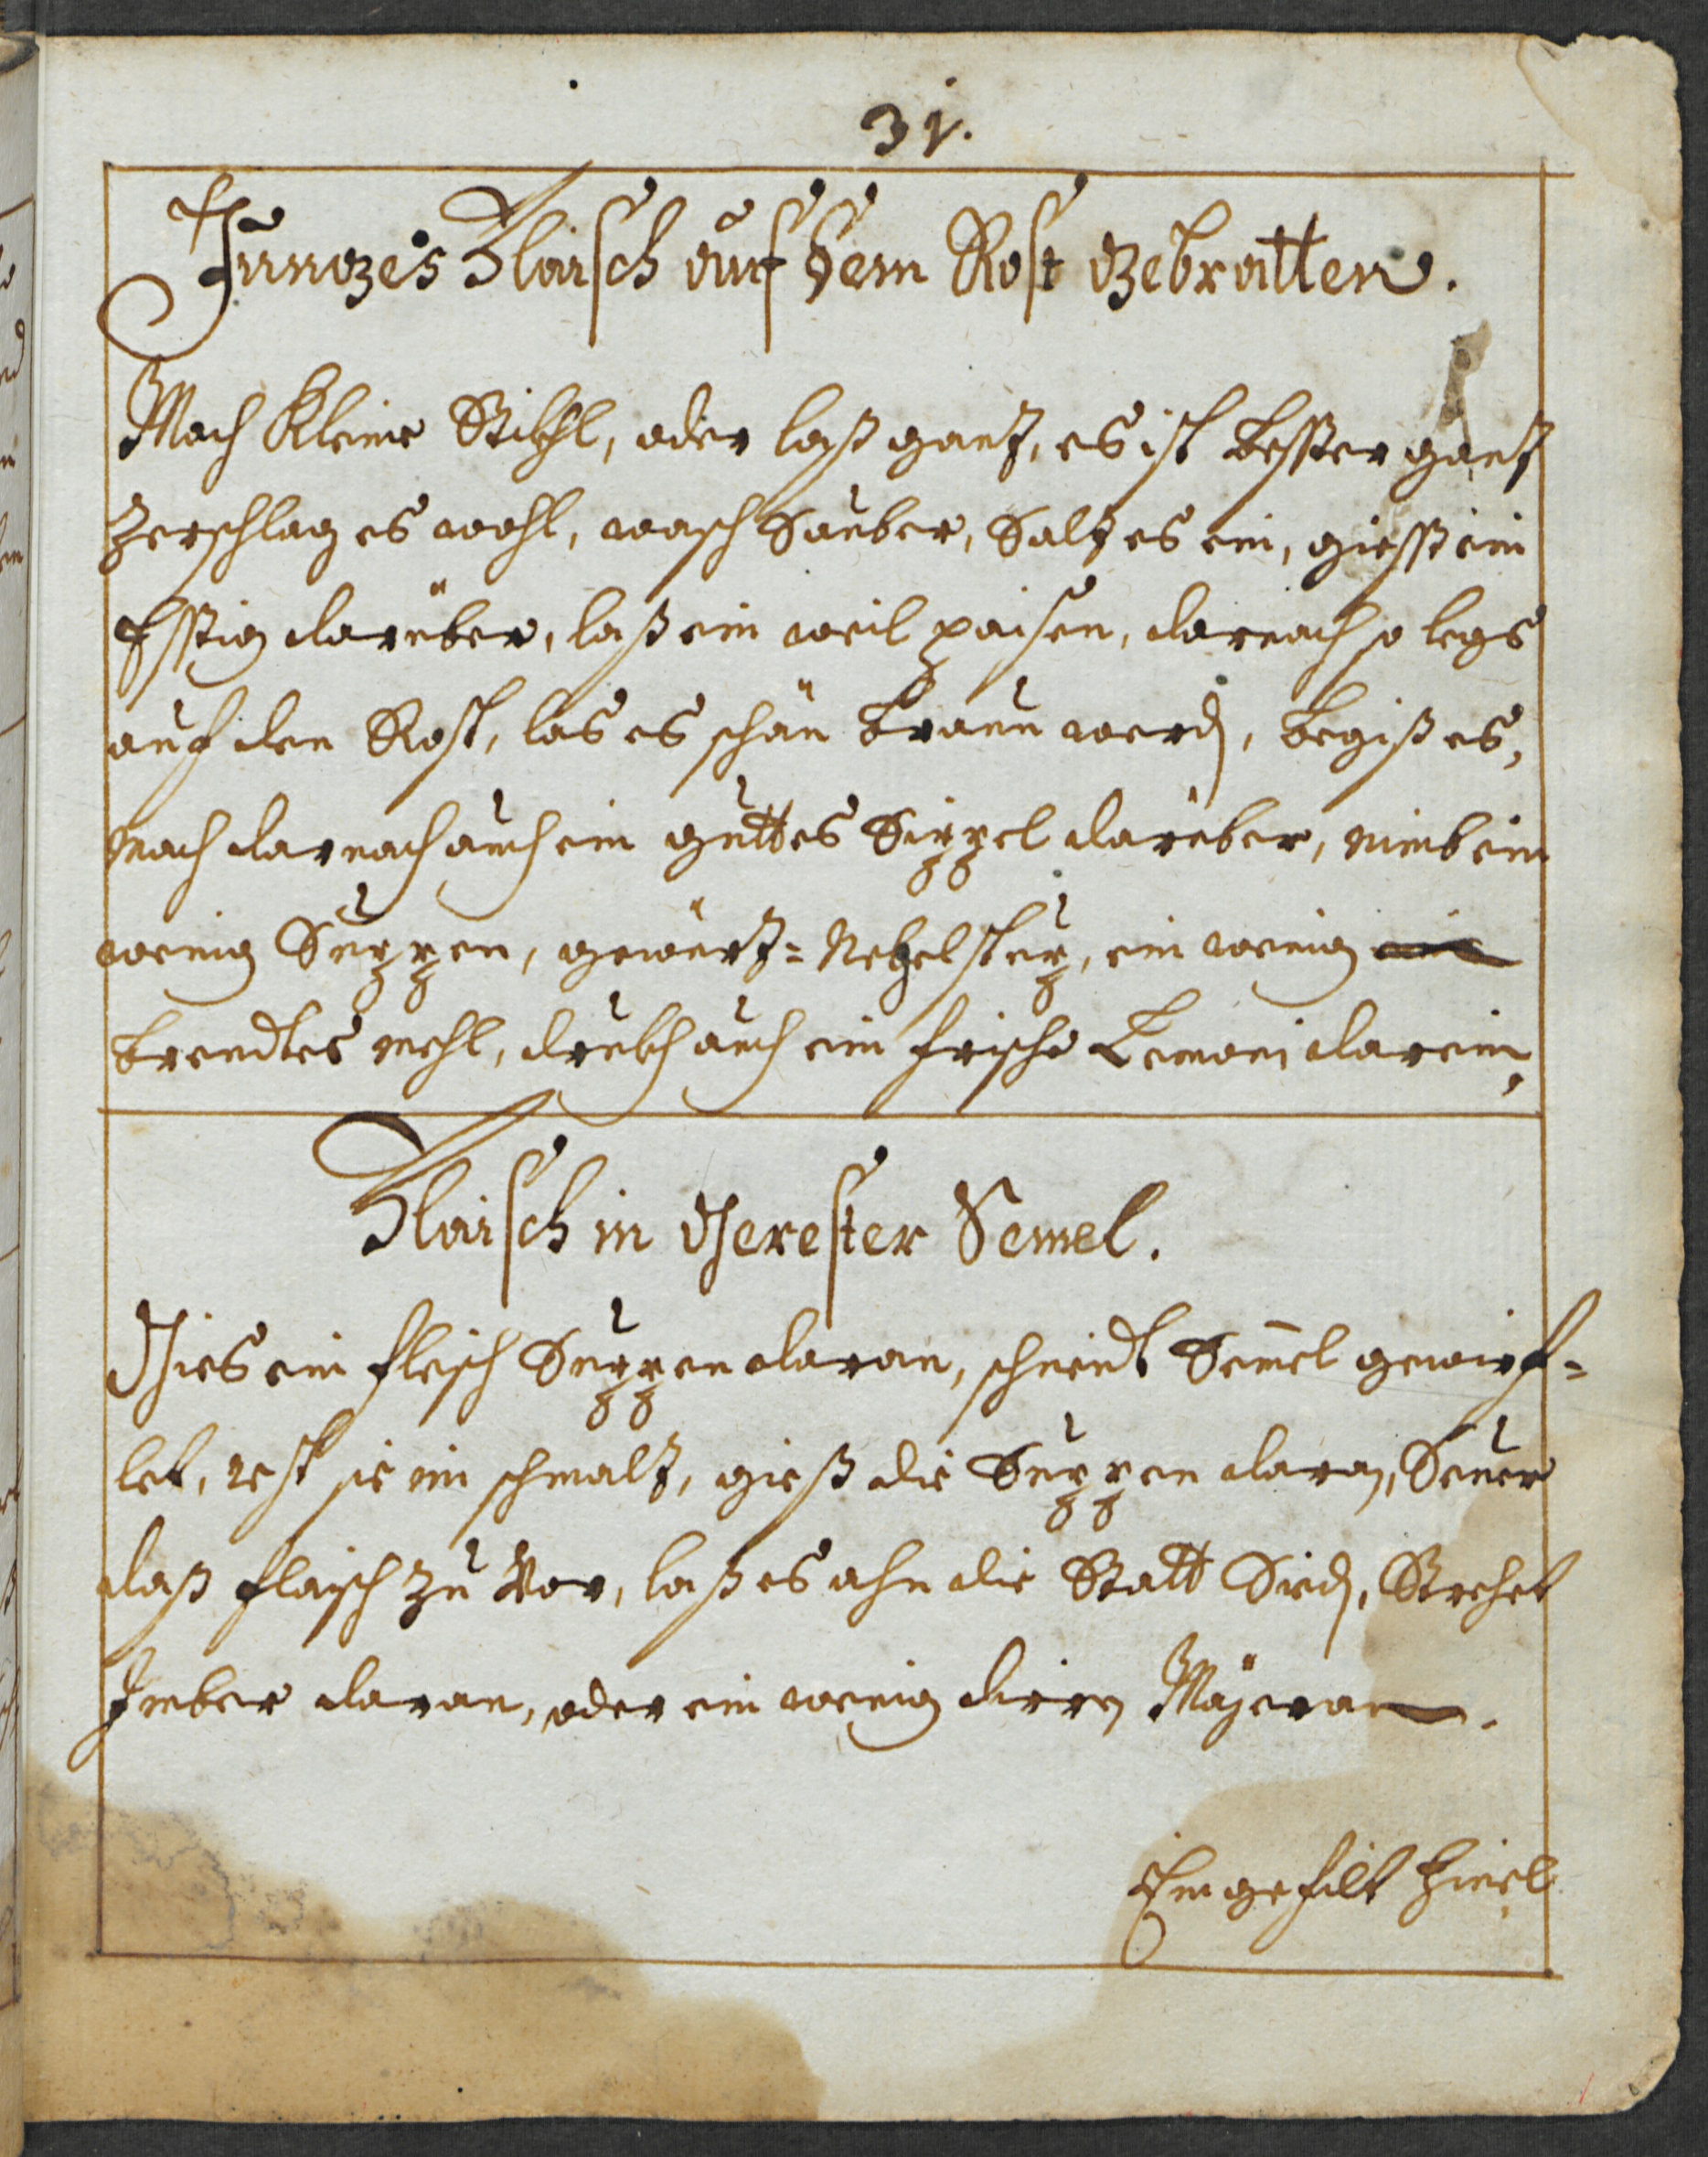 31.
Junges Flaisch auf dem Rost gebratten.
Mach kleine Stikhl, oder laß gantz, es ist besser gantz
zerschlag es wohl, wasch sauber, saltz es ein, giesß ein
Essig darüber, laß ein weil paisen, darnach so legs
auf den Rost, las es schön braun werdn, begiß es,
mach darnach auch ein guttes Sippel darüber, nimb ein
wenig Suppen, gewürtz=Negelstup, ein wenig
brendtes mehl, drukh auch ein frische Lemoni darein,
Flaisch in gerester Semel.
Gies ein fleisch Suppen daran, schneidt Semel gewirf=
let, rest sie im schmaltz, gieß die Suppen daran, Seuer
daß flaisch zu vor, laß es ahn die Statt Sieden, Strehet
Imber daran, oder ein wenig dirren Mäjeran.
Eingefilt Hiendl